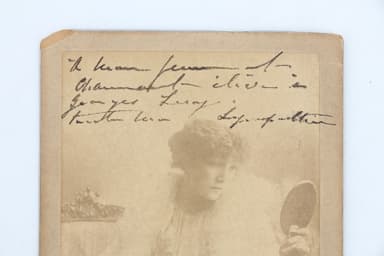 A mon jeune et
charmant élève
Georges Leroy
toute ma sympathie